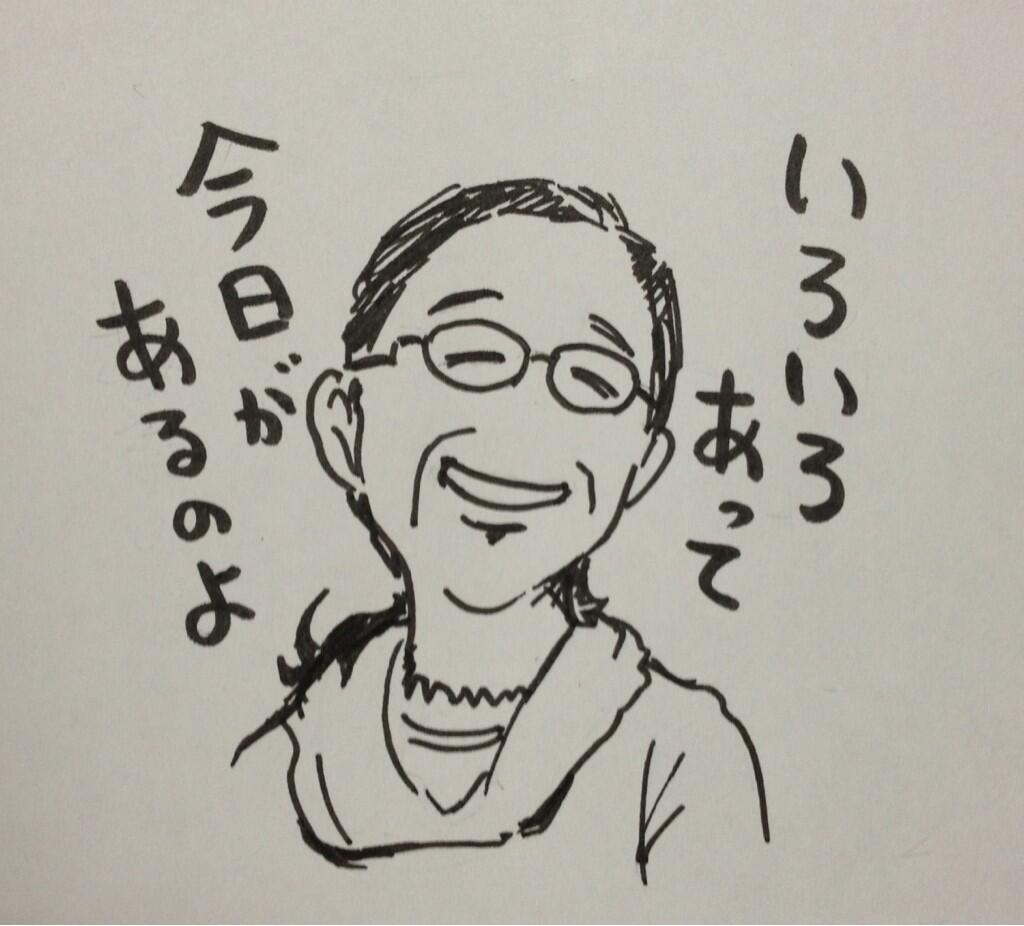 いろいろ
あって
今日が
あるのよ